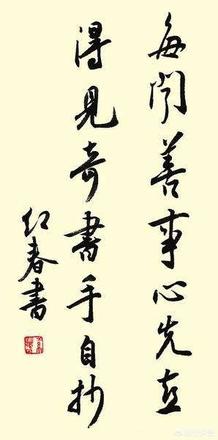 每聞善事心先喜
得見奇書手自抄
红春書